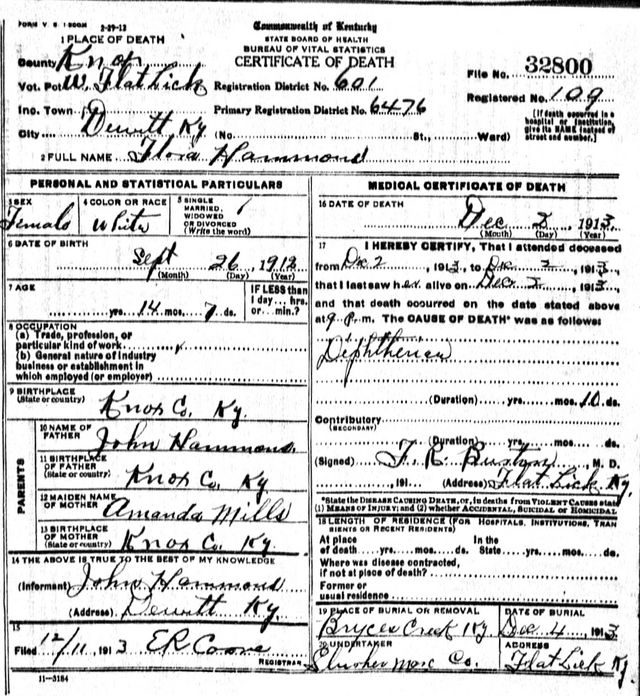 FORM V. S. 1-500M
2-29-12
Commonwealth of Kentucky
STATE BOARD OF HEALTH
BUREAU OF VITAL STATISTICS
CERTIFICATE OF DEATH
1 PLACE OF DEATH
County Knox
Vot. Pct. W. Flat Lick Registration District No. 601
Inc. Town Primary Registration District No. 6476
City Dewitt Ky (No. St., Ward)
File No. 32800
Registered No. 109
[If death occurred in a
hospital or institution,
give its NAME instead of
street and number.]
2 FULL NAME Flora Hammond
PERSONAL AND STATISTICAL PARTICULARS
3 SEX Female
4 COLOR OR RACE White
5 SINGLE
MARRIED,
WIDOWED
OR DIVORCED
(Write the word)
6 DATE OF BIRTH
Sept 26, 1912
(Month) (Day) (Year)
7 AGE
yrs. 14 mos. 7 ds.
IF LESS than
1 day... hrs.
or... min.?
8 OCCUPATION
(a) Trade, profession, or
particular kind of work
(b) General nature of industry
business or establishment in
which employed (or employer)
9 BIRTHPLACE
(State or country) Knox Co. Ky.
PARENTS
10 NAME OF
FATHER John Hammond.
11 BIRTHPLACE
OF FATHER
(State or country) Knox Co. Ky
12 MAIDEN NAME
OF MOTHER Amanda Mills
13 BIRTHPLACE
OF MOTHER
(State or country) Knox Co. Ky.
14 THE ABOVE IS TRUE TO THE BEST OF MY KNOWLEDGE
(Informant) John Hammond
(Address) Dewitt Ky.
15
Filed 12/11, 1913
REGISTRAR
11-3184
MEDICAL CERTIFICATE OF DEATH
16 DATE OF DEATH
Dec 2, 1913
(Month) (Day) (Year)
17 I HEREBY CERTIFY, That I attended deceased
from Dec 2, 1913, to Dec 2, 1913,
that I last saw her alive on Dec 2, 1913,
and that death occurred on the date stated above
at 9 P.m. The CAUSE OF DEATH* was as follows:
(Duration) yrs. mos. 10 ds.
Contributory
(SECONDARY)
(Duration) yrs. mos. ds.
(Signed) M. D.
, 191 (Address) Flat Lick Ky.
*State the DISEASE CAUSING DEATH, or, in deaths from VIOLENT CAUSES state
(1) MEANS OF INJURY; and (2) whether ACCIDENTAL, SUICIDAL OR HOMICIDAL
18 LENGTH OF RESIDENCE (FOR HOSPITALS, INSTITUTIONS, TRAN
SIENTS OR RECENT RESIDENTS)
At place In the
of death yrs. mos. ds. State yrs. mos. ds.
Where was disease contracted,
if not at place of death?
Former or
usual residence
19 PLACE OF BURIAL OR REMOVAL
Bryces Creek Ky
DATE OF BURIAL
Dec 4, 1913
20 UNDERTAKER
ADDRESS
Flat Lick Ky.